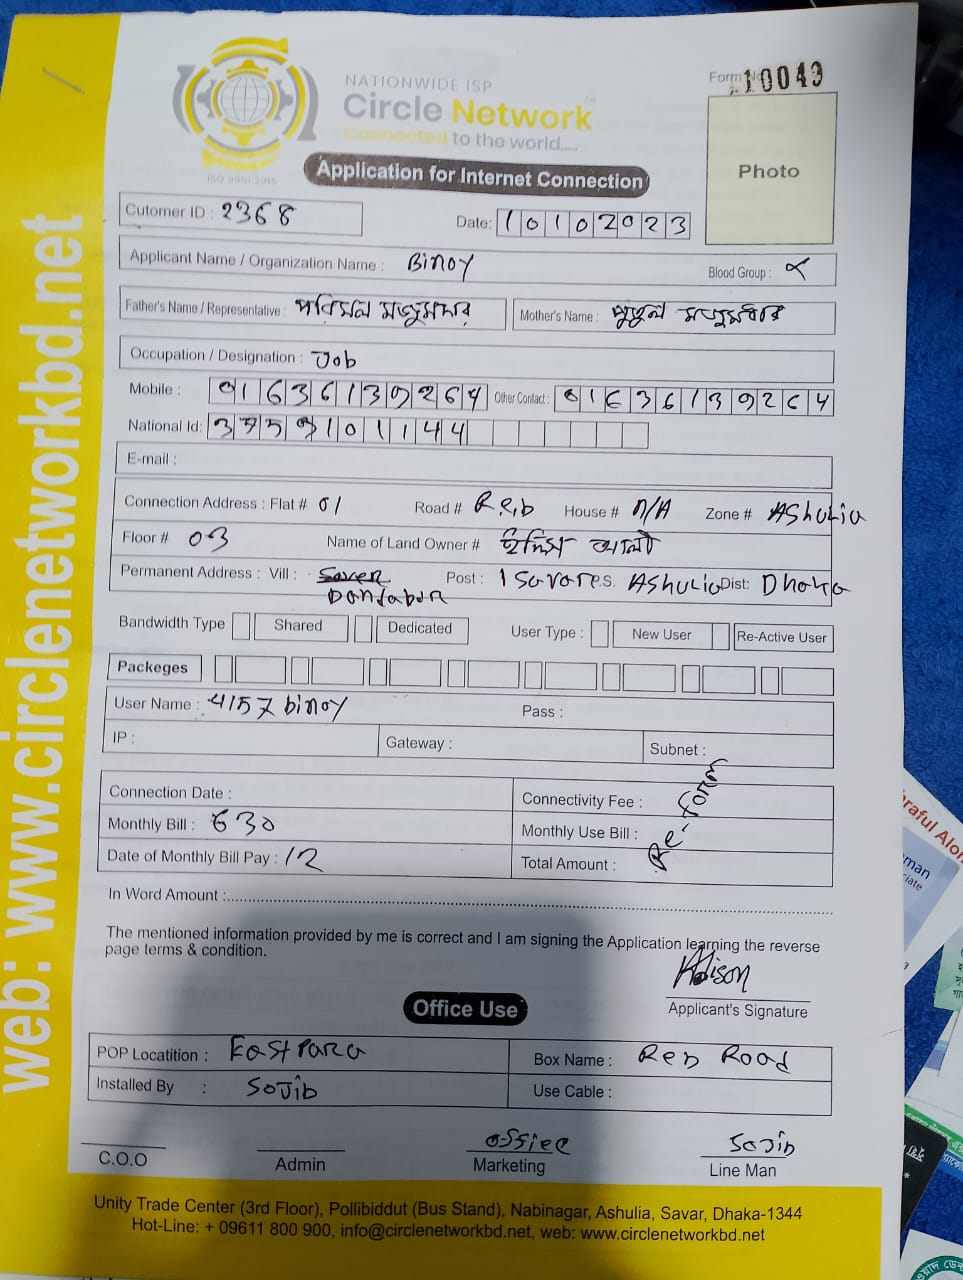 NATIONWIDE ISP
Circle Network
Connected to the world.....
ISO 9001:2015
Form No. 10049
Photo
Application for Internet Connection
Cutomer ID : 2368
Date: 10102023
Applicant Name / Organization Name : Binoy
Blood Group :
Father's Name / Representative : পরিমল মজুমদার
Mother's Name : পুতুল মজুমদার
Occupation / Designation : Job
Mobile : 01636139264 Other Contact : 01636139264
National Id: 3759101144
E-mail :
Connection Address : Flat # 01 Road # Reb House # n/A Zone # Ashulia
Floor # 03 Name of Land Owner # ইদ্রিস আলী
Permanent Address : Vill : Post : Savar P.S. Ashulia Dist: Dhaka
Bandwidth Type Shared Dedicated User Type : New User Re-Active User
Packeges
User Name : 4157binoy Pass :
IP : Gateway : Subnet :
Connection Date : Connectivity Fee :
Monthly Bill : 630 Monthly Use Bill :
Date of Monthly Bill Pay : 12 Total Amount :
Re form
In Word Amount :
The mentioned information provided by me is correct and I am signing the Application learning the reverse
page terms & condition.
Applicant's Signature
Office Use
POP Locatition : East Para Box Name : Reb Road
Installed By : Sojib Use Cable :
C.O.O
Admin
offiec
Marketing
Sojib
Line Man
Unity Trade Center (3rd Floor), Pollibiddut (Bus Stand), Nabinagar, Ashulia, Savar, Dhaka-1344
Hot-Line: + 09611 800 900, info@circlenetworkbd.net, web: www.circlenetworkbd.net
web: www.circlenetworkbd.net